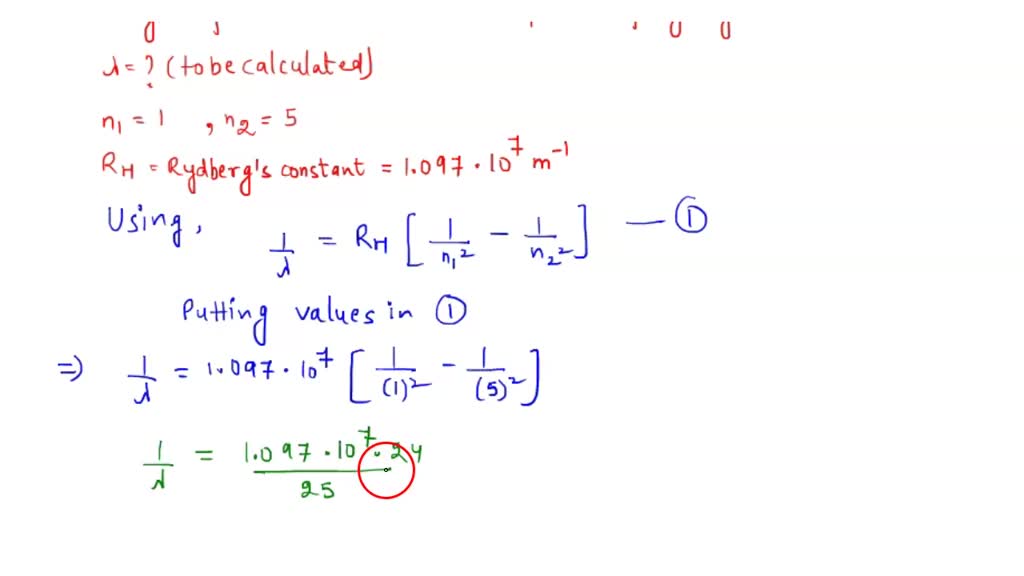 λ = ? (to be calculated)
n₁ = 1 , n₂ = 5
R_H = Rydberg's constant = 1.097 · 10⁷ m⁻¹
Using,
1/λ = R_H [ 1/n₁² − 1/n₂² ] — ①
Putting values in ①
⇒) 1/λ = 1.097 · 10⁷ [ 1/(1)² − 1/(5)² ]
1/λ = 1.097 · 10⁷ · 24 / 25